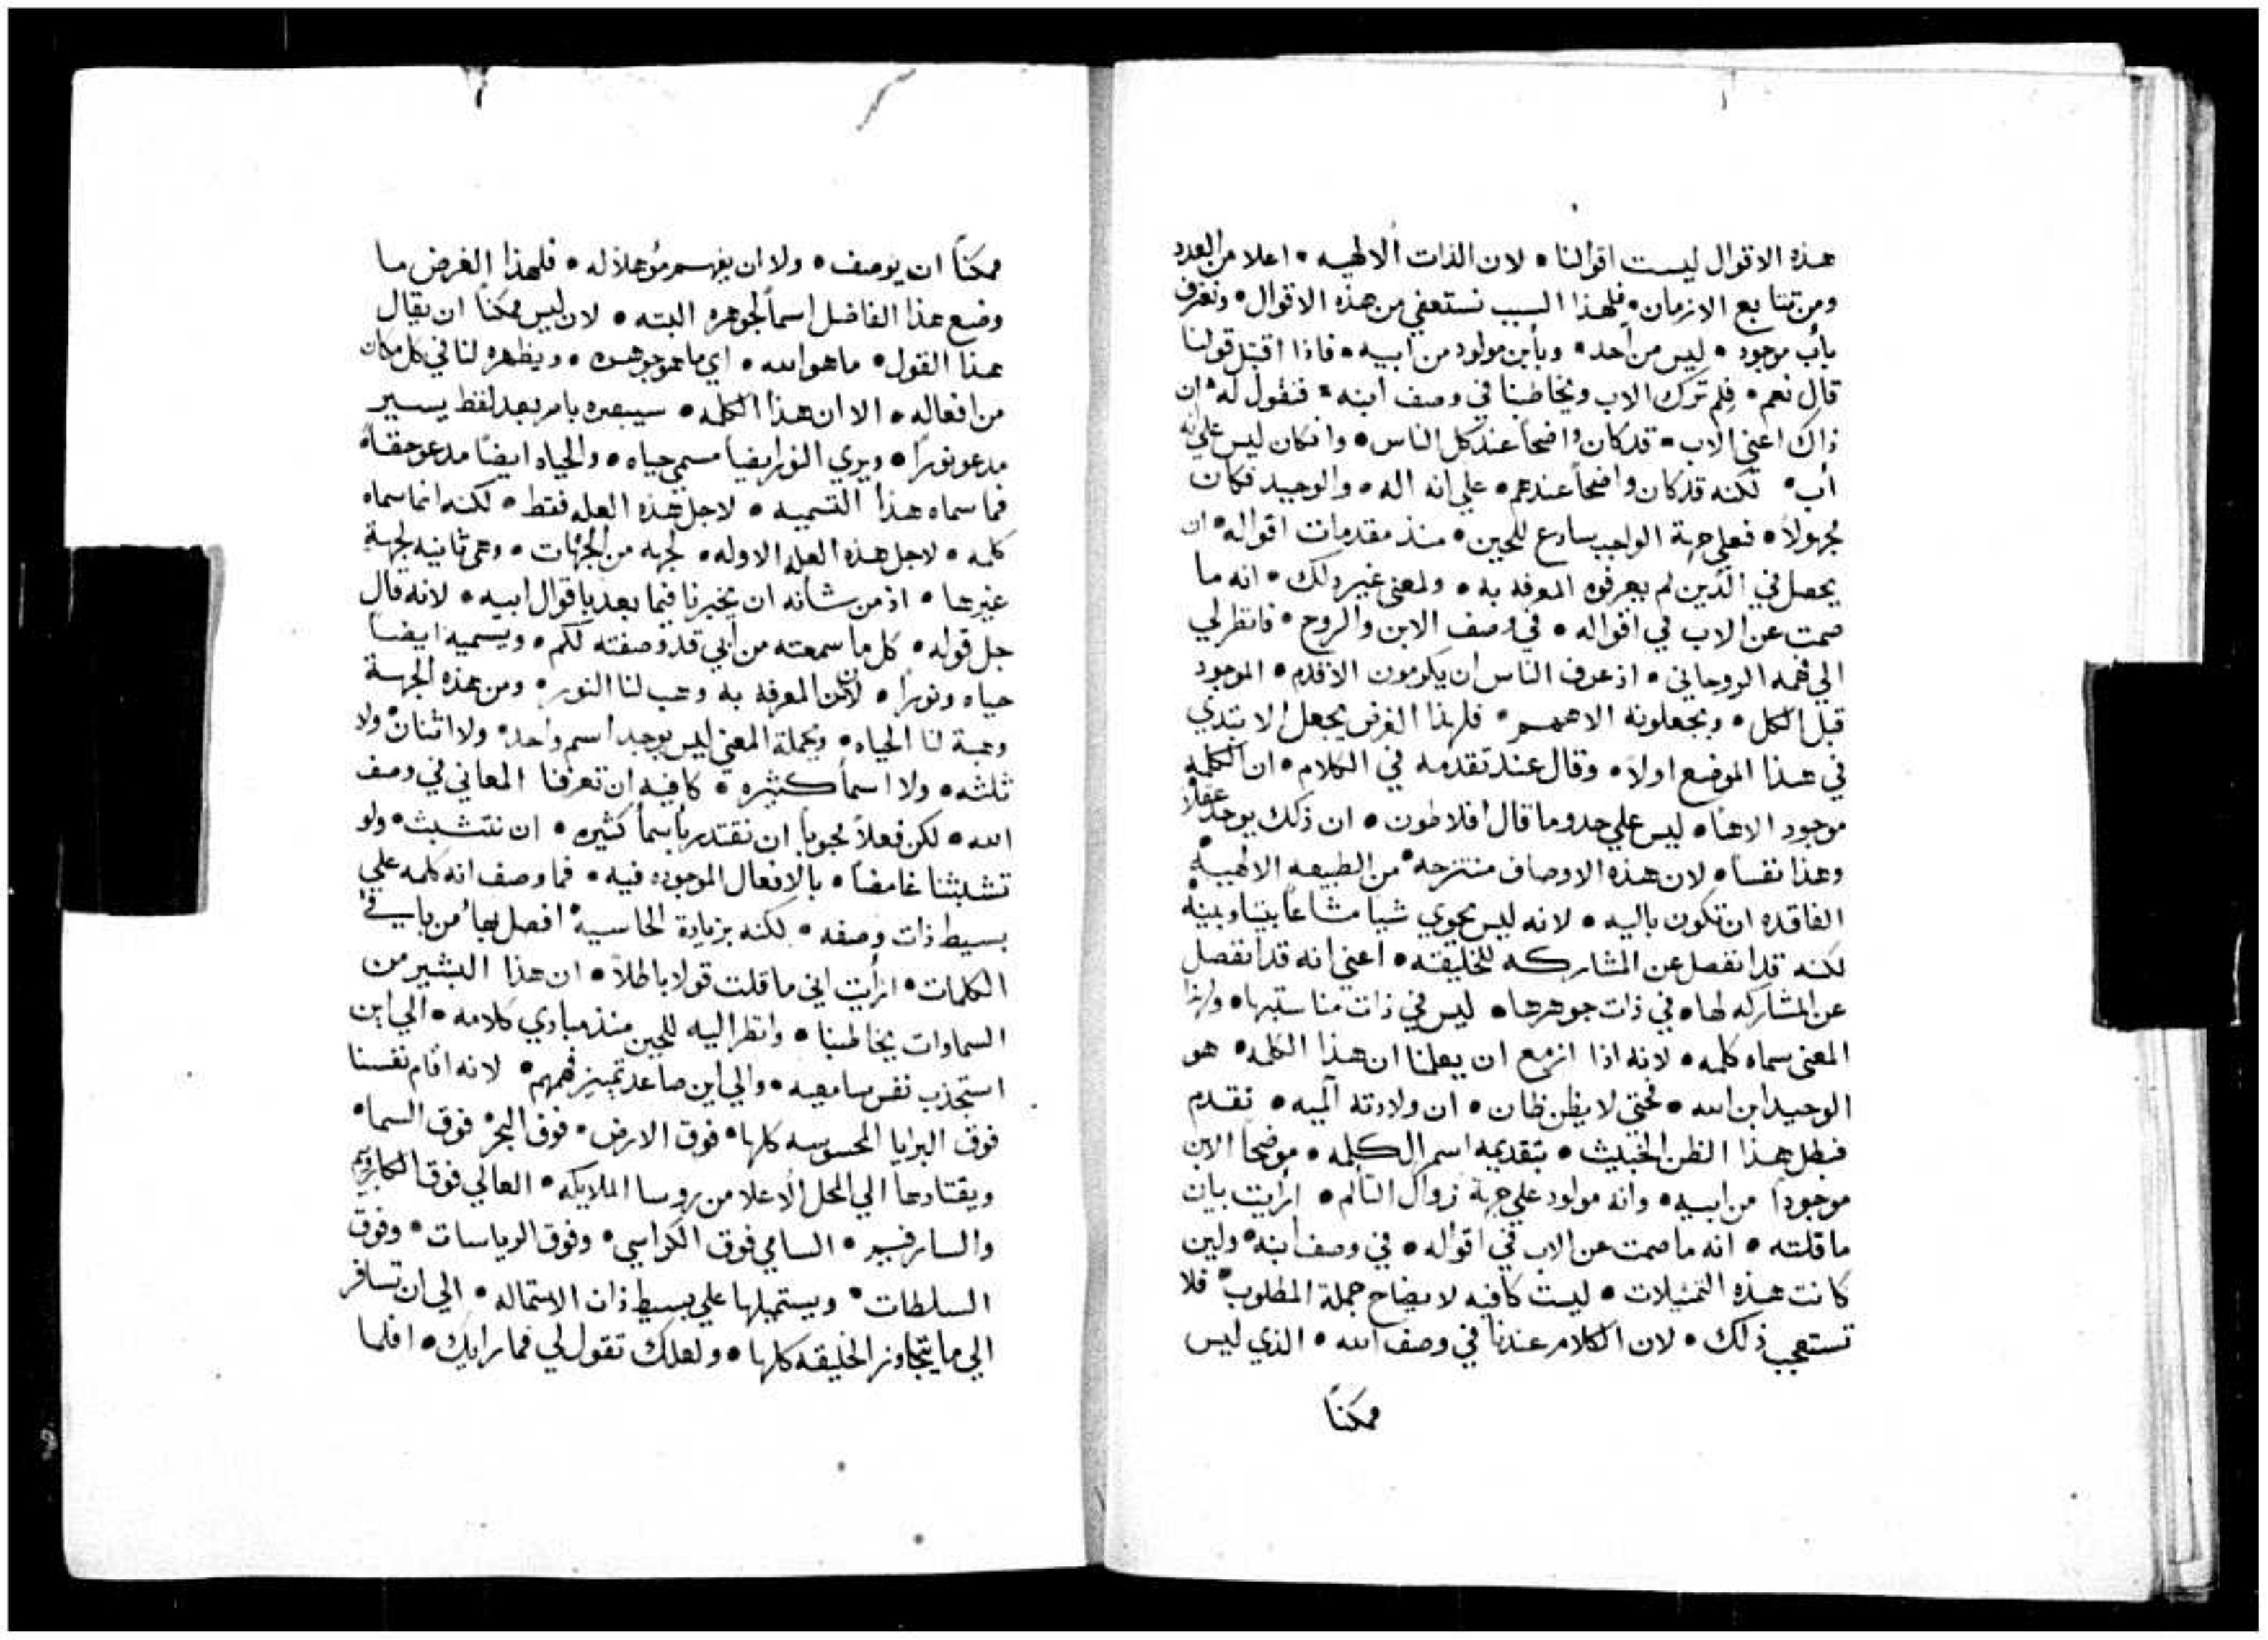 هذه الاقوال ليست اقوالنا • لان الذات الالهيه • اعلا من العدد
ومن تتابع الازمان • فلهذا السبب نستعفي من هذه الاقوال • ونعترف
بأب موجود • ليس من أحد • وبأبن مولود من ابيه • فاذا اقتبل قولنا
قال نعم • فلم ترك الاب ويخاطبنا في وصف ابنه • فنقول له ان
ذاك اعني الاب • قد كان واضحاً عند كل الناس • وان كان ليس علي انه
أب • لكنه قد كان واضحاً عندهم • علي انه اله • والوحيد فكان
مجهولاً • فعلي جهة الواجب سارع للحين • منذ مقدمات اقواله • ان
يحصل في الذين لم يعرفوه المعرفه به • ولمعني غير ذلك • انه ما
صمت عن الاب في اقواله • في وصف الابن والروح • فانظر لي
الي فهمه الروحاني • اذ عرف الناس ان يكرمون الاقدم • الموجود
قبل الكل • ويجعلونه الاههم • فلهذا الغرض يجعل الابتدي
في هذا الموضع اولاً • وقال عند تقدمه في الكلام • ان الكلمه
موجود الاهنا • ليس علي حدو ما قال افلاطون • ان ذلك يوجد عقلاً
وهذا نفساً • لان هذه الاوصاف منتزحه من الطبيعه الالهيه
الفاقده ان تكون باليه • لانه ليس يحوي شيا مشاعاً بيننا وبينه
لكنه قد انفصل عن المشاركه للخليقه • اعني انه قد انفصل
عن المشاركه لها • في ذات جوهرها • ليس في ذات مناسبتها • ولهذا
المعني سماه كلمه • لانه اذا ازمع ان يعلمنا ان هذا الكلمه • هو
الوحيد ابن الله • فحتي لا يظن ظان • ان ولادته آلميه • تقدم
فبطل هذا الظن الخبيث • بتقديمه اسم الكلمه • موضحاً الابن
موجوداً من ابيه • وانه مولود علي جهة زوال التألم • ارأيت بيان
ما قلته • انه ما صمت عن الاب في اقواله • في وصف ابنه • ولين
كانت هذه التمثيلات • ليست كافيه لايضاح جملة المطلوب • فلا
تستعجب ذلك • لان الكلام عندنا في وصف الله • الذي ليس
ممكناً
ممكناً ان يوصف • ولا ان يفهم موهلاً له • فلهذا الغرض ما
وضع هذا الفاضل اسماً لجوهره البته • لان ليس ممكناً ان يقال
هذا القول • ما هو الله • اي ما هو جوهره • ويظهره لنا في كل مكان
من افعاله • الا ان هذا الكلمه • سيبصره بامر بعد لفظ يسير
مدعو نوراً • ويري النور ايضاً مسمي حياه • والحياه ايضاً مدعو حقاً
فما سماه هذا التسميه • لاجل هذه العله فقط • لكنه انما سماه
كلمه • لاجل هذه العله الاوله • لجهه من الجهات • وهي ثانيه لجهة
غيرها • اذ من شانه ان يخبرنا فيما بعد باقوال ابيه • لانه قال
جل قوله • كل ما سمعته من ابي قد وصفته لكم • ويسميه ايضاً
حياه ونوراً • لان المعرفه به وهب لنا النور • ومن هذه الجهة
وهبة لنا الحياه • وبجملة المعني ليس يوجد اسم واحد • ولا اثنان ولا
ثلثه • ولا اسماً كثيره • كافيه ان تعرفنا المعاني في وصف
الله • لكن فعلاً محبوباً ان نقتدر باسماً كثيره • ان نتشبث • ولو
تشبثنا غامضاً • بالافعال الموجوده فيه • فما وصف انه كلمه علي
بسيط ذات وصفه • لكنه بزيادة الحاسيه افصل بها من باقي
الكلمات • ارأيت اني ما قلت قولا باطلاً • ان هذا البشير من
السماوات يخاطبنا • وانظر اليه للحين منذ مبادي كلامه • الي اين
استجذب نفس سامعيه • والي اين صاعد تمييز فهمهم • لانه اقام نفسنا
فوق البرايا المحسوسه كلها • فوق الارض • فوق البحر فوق السما •
ويقتادها الي المحل الاعلا من روسا الملايكه • العالي فوق الكاروبيم
والسارفيم • السامي فوق الكراسي • وفوق الرياسات • وفوق
السلطات • ويستميلها علي بسيط ذات الاستماله • الي ان تسافر
الي ما يتجاوز الخليقه كلها • ولعلك تقول لي فما رايك • افلما